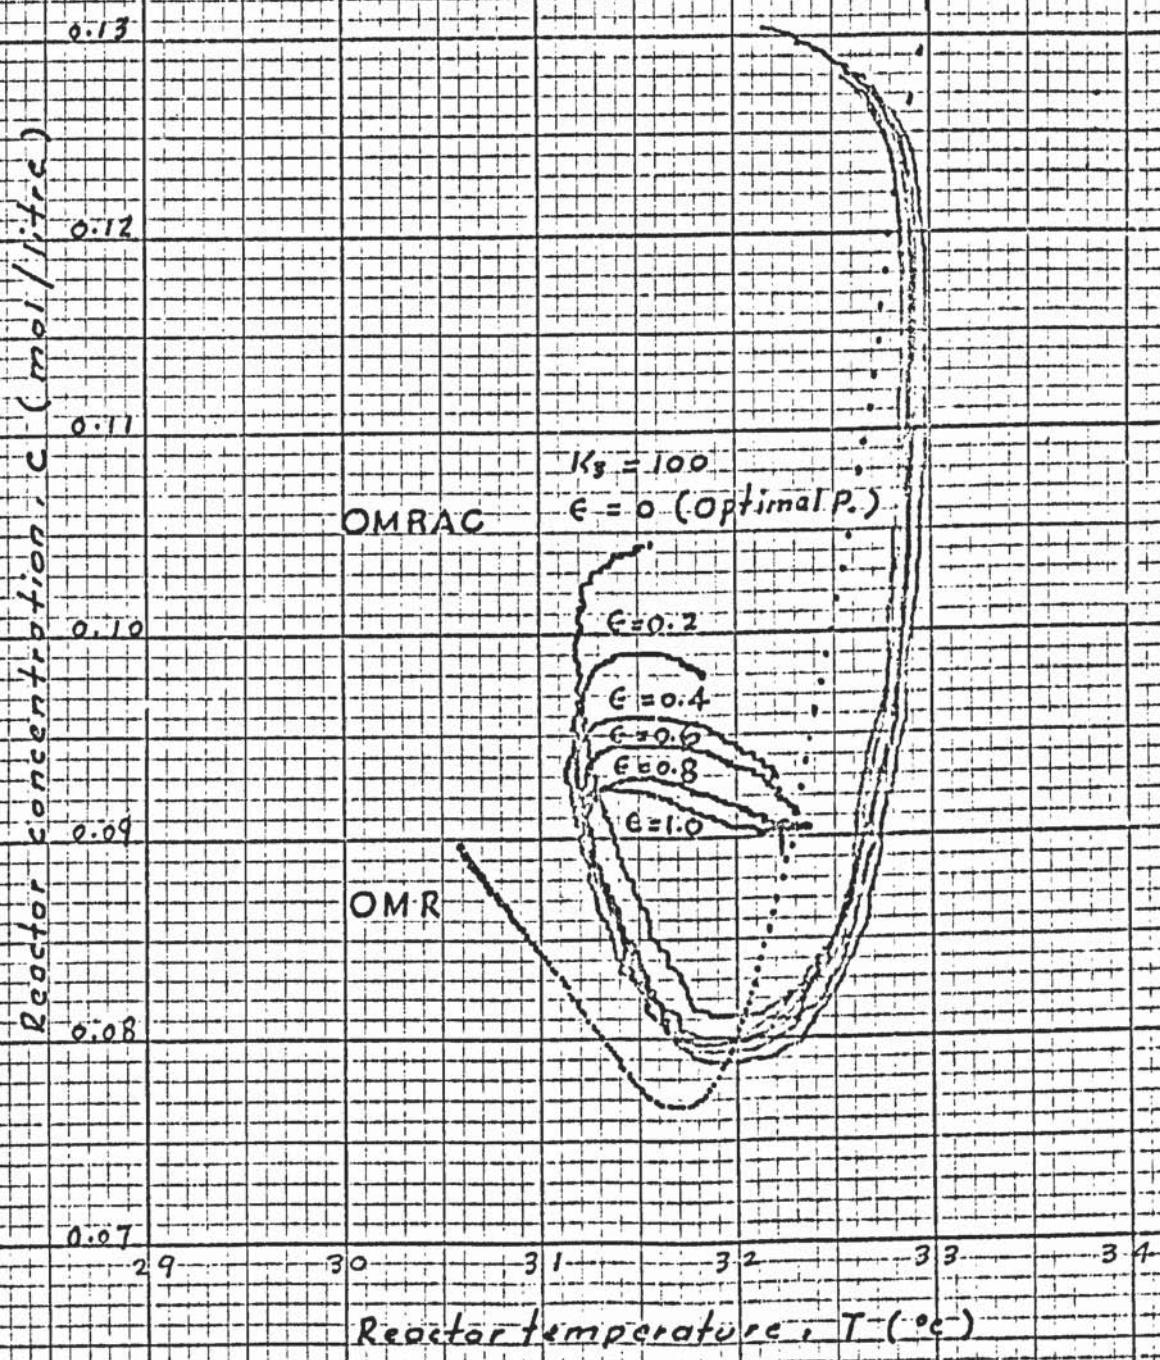 0.13
0.12
0.11
0.10
0.09
0.08
0.07
Reactor concentration, C (mol/litre)
K₃ = 100
ϵ = 0 (Optimal P.)
OMRAC
ϵ=0.2
ϵ=0.4
ϵ=0.6
ϵ=0.8
ϵ=1.0
OMR
29 30 31 32 33 34
Reactor temperature, T (°c)